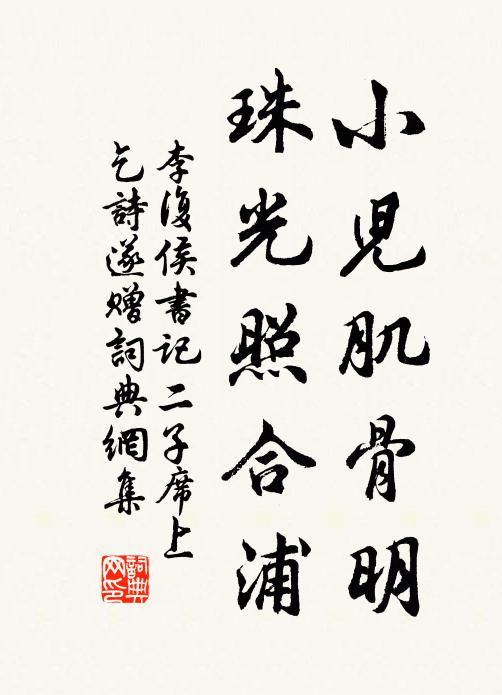 小兒肌骨明
珠光照合浦
李復侯書記二子席上
乞詩遂贈詞典網集
詞典網印